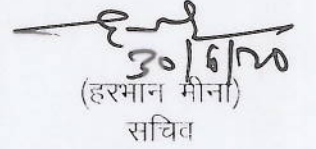 30/6/20
(हरभान मीना)
सचिव